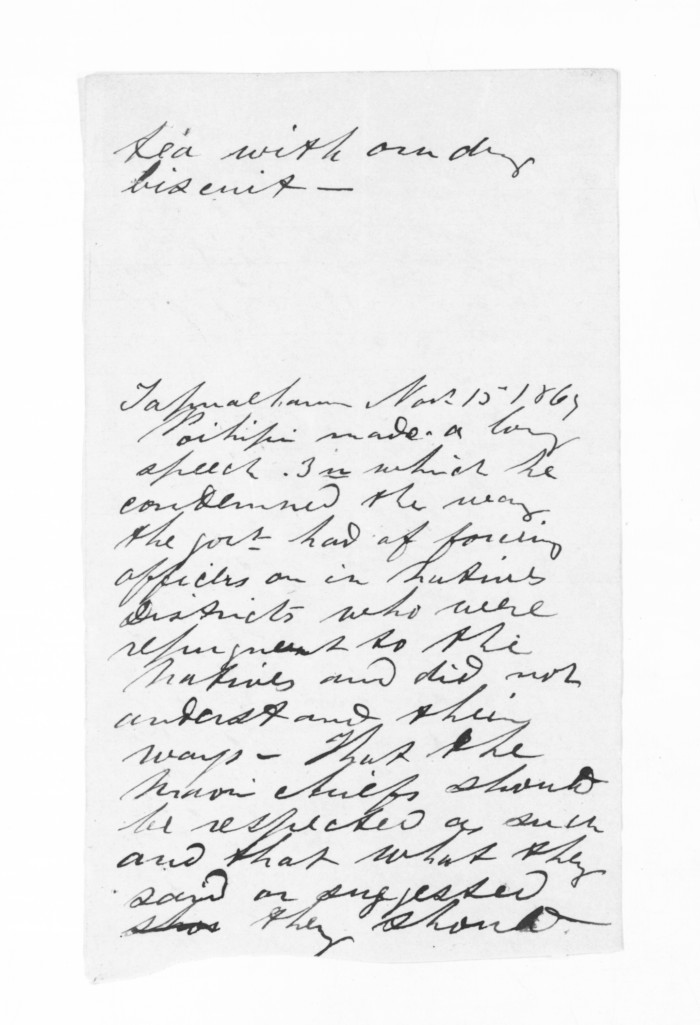 tea with our dry
biscuit —
Tapuaeharuru Nov. 15 1869
Poihipi made a long
speech. In which he
condemned the way
the govt had of forcing
officers on in natives
Districts who were
repugnant to the
natives and did not
understand their
ways — That the
Maori chiefs should
be respected as such
and that what they
said or suggested
they should